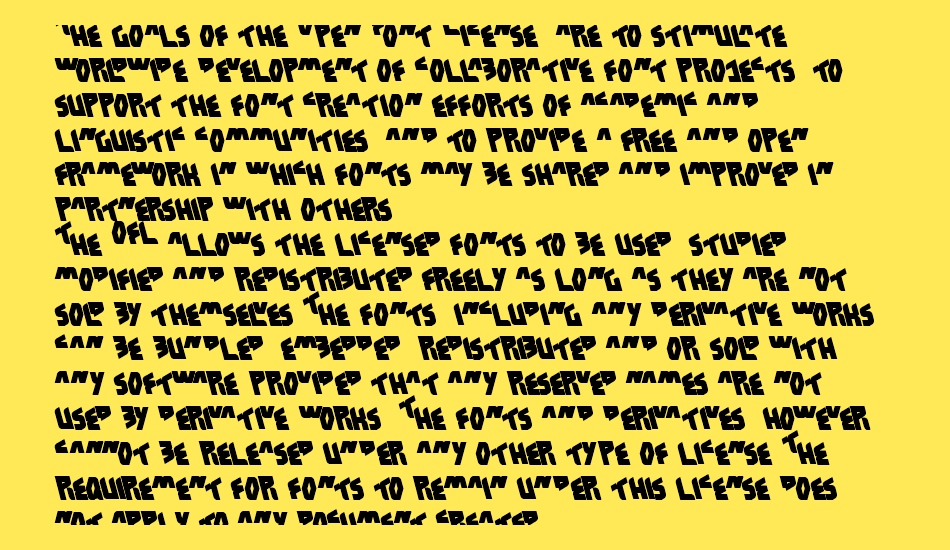 THE GOALS OF THE OPEN FONT LICENSE ARE TO STIMULATE
WORLDWIDE DEVELOPMENT OF COLLABORATIVE FONT PROJECTS TO
SUPPORT THE FONT CREATION EFFORTS OF ACADEMIC AND
LINGUISTIC COMMUNITIES AND TO PROVIDE A FREE AND OPEN
FRAMEWORK IN WHICH FONTS MAY BE SHARED AND IMPROVED IN
PARTNERSHIP WITH OTHERS
THE OFL ALLOWS THE LICENSED FONTS TO BE USED STUDIED
MODIFIED AND REDISTRIBUTED FREELY AS LONG AS THEY ARE NOT
SOLD BY THEMSELVES THE FONTS INCLUDING ANY DERIVATIVE WORKS
CAN BE BUNDLED EMBEDDED REDISTRIBUTED AND OR SOLD WITH
ANY SOFTWARE PROVIDED THAT ANY RESERVED NAMES ARE NOT
USED BY DERIVATIVE WORKS THE FONTS AND DERIVATIVES HOWEVER
CANNOT BE RELEASED UNDER ANY OTHER TYPE OF LICENSE THE
REQUIREMENT FOR FONTS TO REMAIN UNDER THIS LICENSE DOES
NOT APPLY TO ANY DOCUMENT CREATED